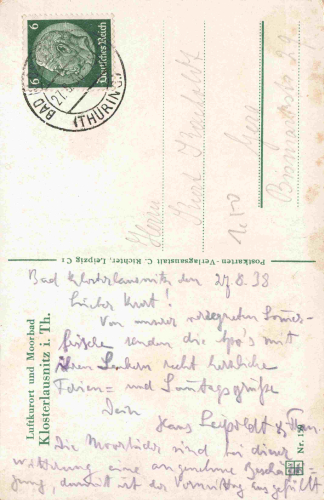 6 6
Deutsches Reich
BAD
27.8
(THÜRING)
Herrn
Kurt
Gera
Bismarckstr.
Postkarten-Verlagsanstalt C. Richter, Leipzig C1
Luftkurort und Moorbad
Klosterlausnitz i. Th.
Nr. 159
Bad Klosterlausnitz den 27.8.38
Lieber Kurt!
Von unserer verregneten Sommer-
frische senden die Apo's mit
ihren Lenkern recht herzliche
Ferien= und Sonntagsgrüße
Dein
Hans Leipoldt &
Die Moorbäder sind bei dieser
Witterung eine angenehme Beschäfti=
gung, damit ist der Vormittag ausgefüllt